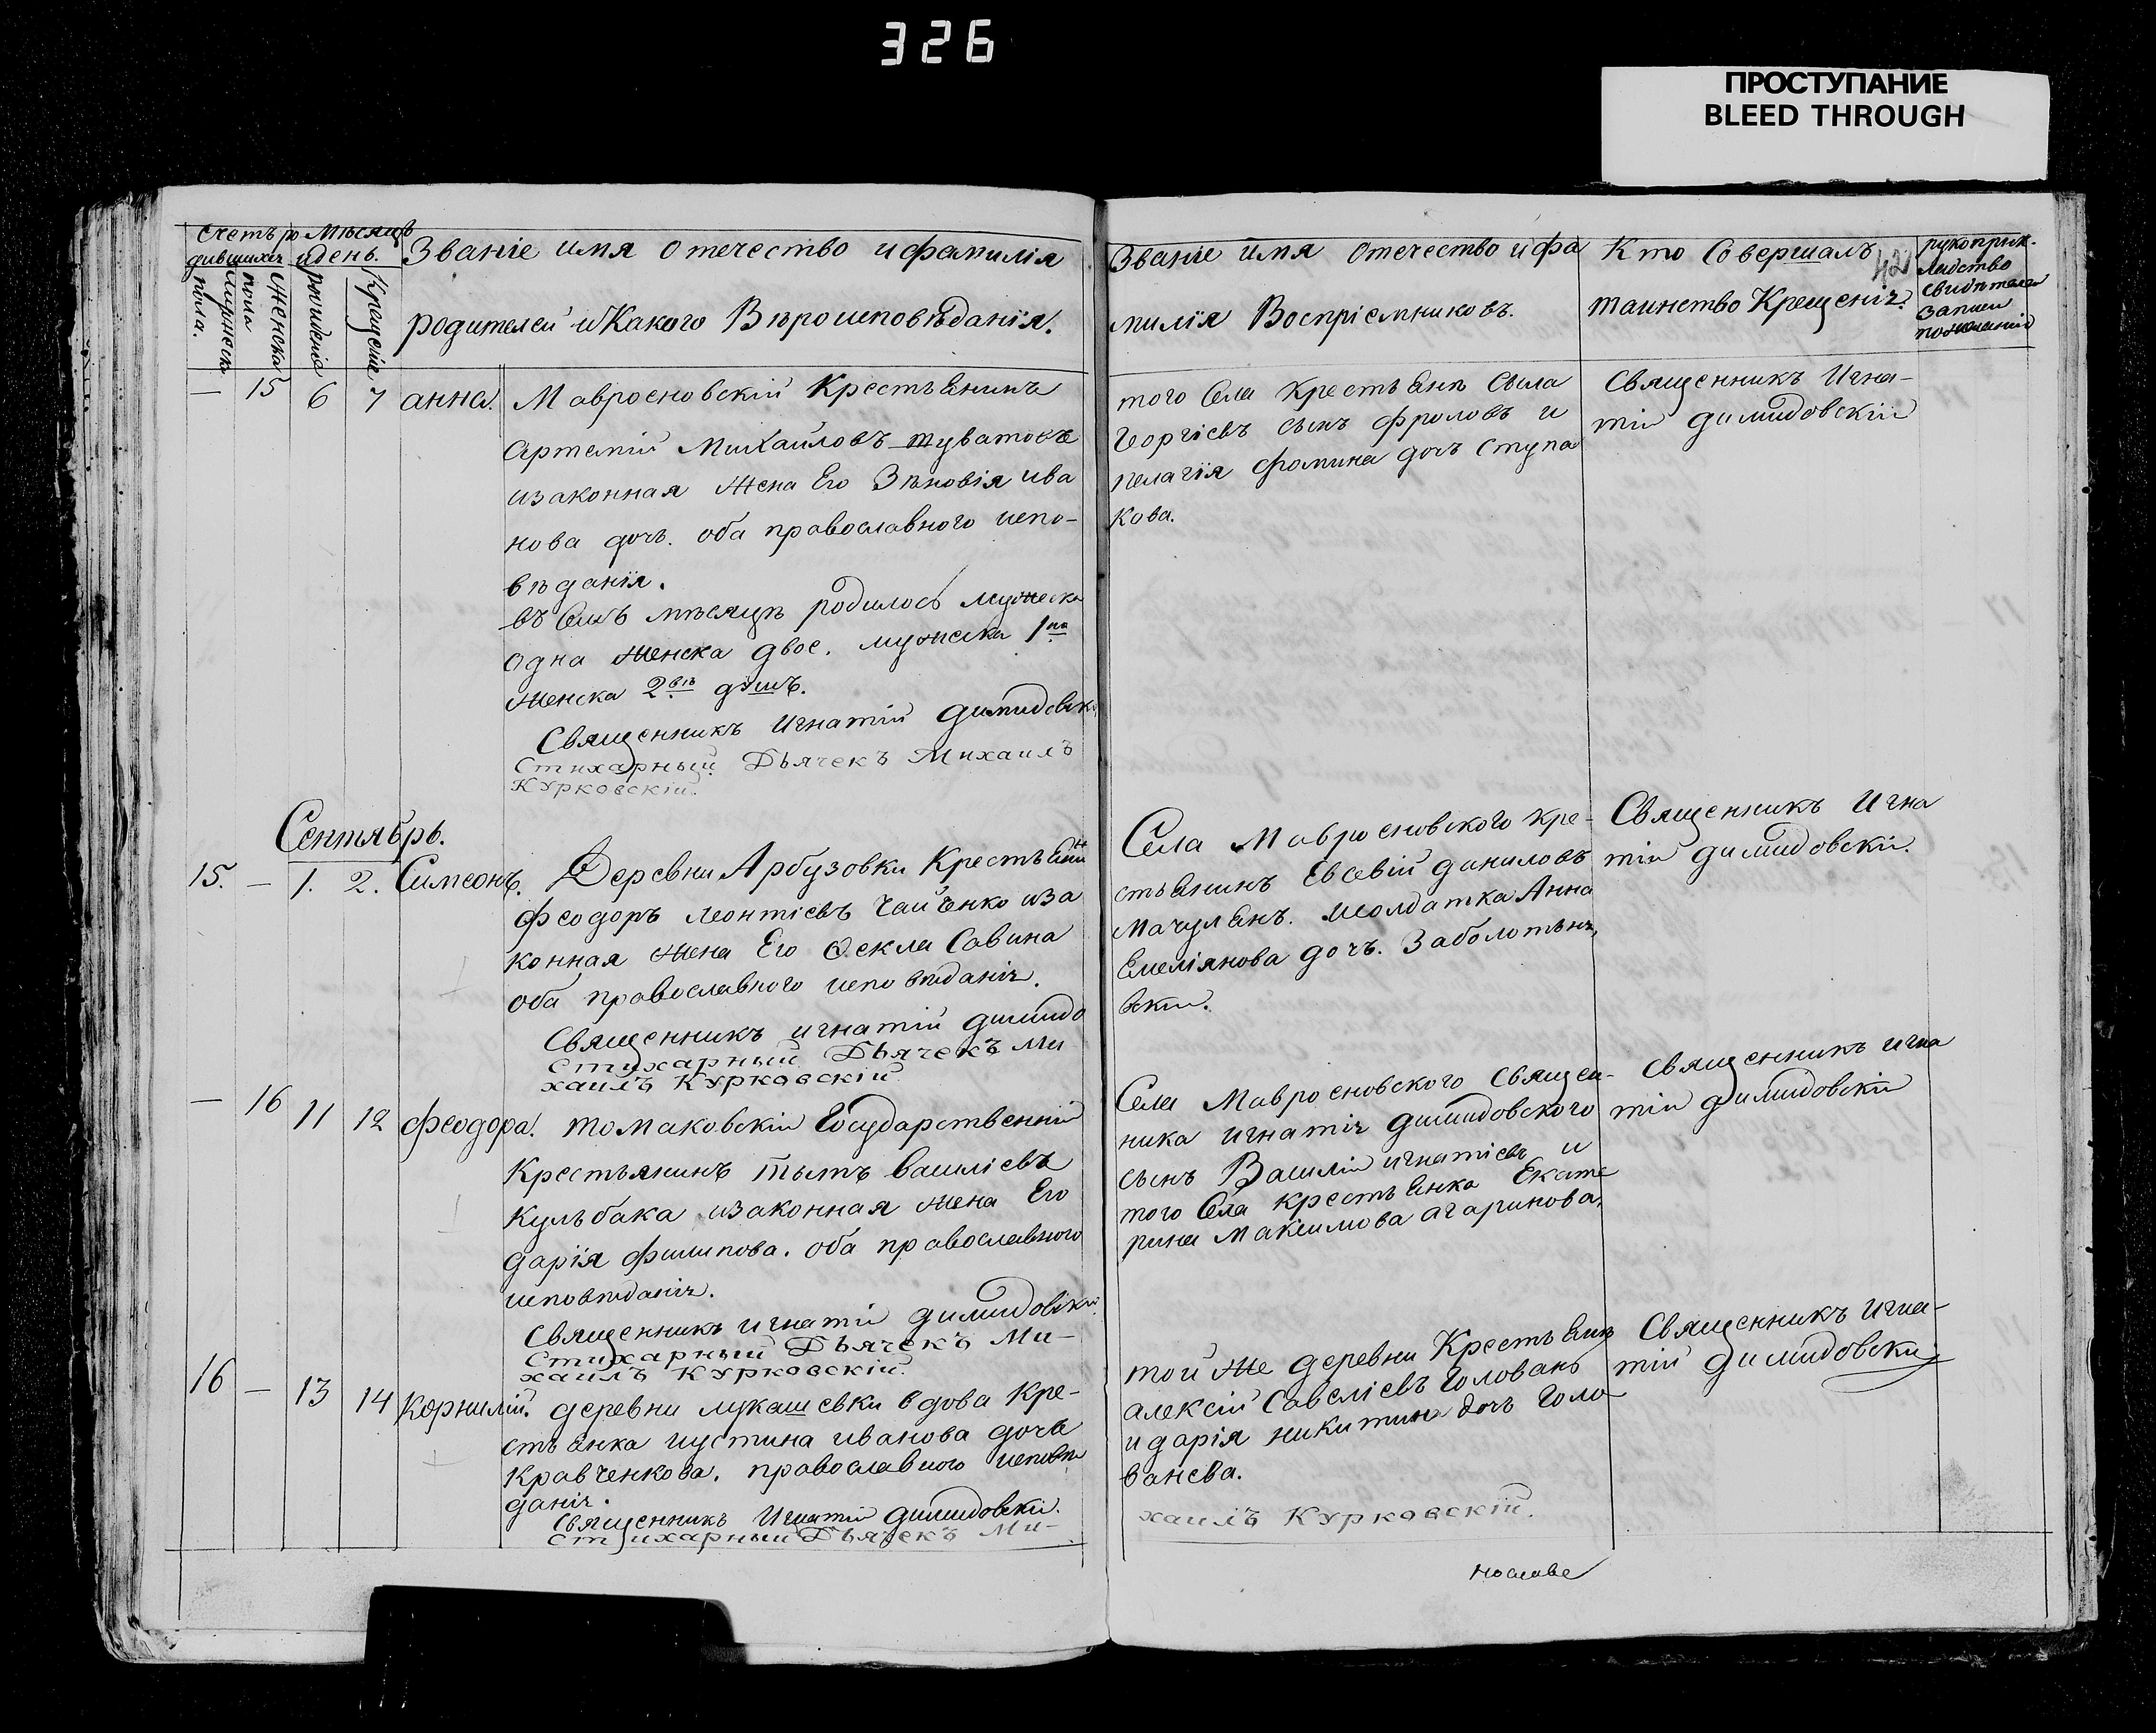 326
ПРОСТУПАНИЕ
BLEED THROUGH
Счетъ ро
дившихся
Мужеска
пола.
Женска
пола
Мѣсяцъ
и день.
рождения
Крещения
Званіе имя отечество и фамилія
родителей и Какого Вѣроисповѣданія.
Званіе имя отечество и фа
милія Воспріемниковъ.
Кто Совершалъ
таинство Крещенія.
рукоприк-
ладство
свидѣтелей
записи
по желанію
— 15 6 7 анна.
Мавроеновскій Крестьянинъ
Артемій Михайловъ
изаконная жена Его Зѣновія ива
нова дочь. оба православного испо-
вѣданія.
въ Семъ мѣсяцѣ родилось мужеска
одна женска двое. мужеска 1на
женска 2вѣ душъ.
Священникъ Игнатій Димидовскі
Стихарный Дьячекъ Михаилъ
Курковскій.
того Села Крестьянъ
Георгіевъ сынъ Фроловъ и
пелагія Фомина дочь Ступа
кова.
Священникъ Игна-
тій Димидовскій
Сентябрь.
15. — 1. 2. Симеонъ.
Деревни Арбузовки Крестьянинъ
Феодоръ Леонтіевъ Чайенко иза
конная жена Его Ѳекла Савина
оба православного исповѣданія.
Священникъ игнатій Димидо
Стихарный Дьячекъ Ми
хаилъ Курковскій
Села Мавроеновского кре-
стьянинъ Евсевій даниловъ
Мачулянъ. Молдатка Анна
Емеліянова дочь. Заболотьня
вскии.
Священникъ Игна
тій Димидовскій.
— 16 11 12 Феодора.
томаковскій Государственній
Крестьянинъ Титъ Василіевъ
Кульбака изаконная жена Его
дарія Филипова. оба православного
исповѣданія.
Священникъ игнатій Димидовскій
Стихарный Дьячекъ Ми-
хаилъ Курковскій.
Села Мавроеновского Священ-
ника игнатія Димидовского
сынъ Василій игнатіевъ и
того Села крестьянка Екате
рина Максимова агаринова.
Священникъ игна
тій Димидовскій
16 — 13 14 Корнилій.
деревни лукашевки вдова Кре-
стьянка иустина иванова дочь
Кравченкова. православного исповѣ
данія.
Священникъ Игнатій Димидовскій.
Стихарный Дьячекъ Ми-
той же деревни Крестьянъ
алексій Савеліевъ Голованъ
и дарія никитина дочь Голо
ванева.
хаилъ Курковскій.
Священникъ Игна-
тій Димидовскій